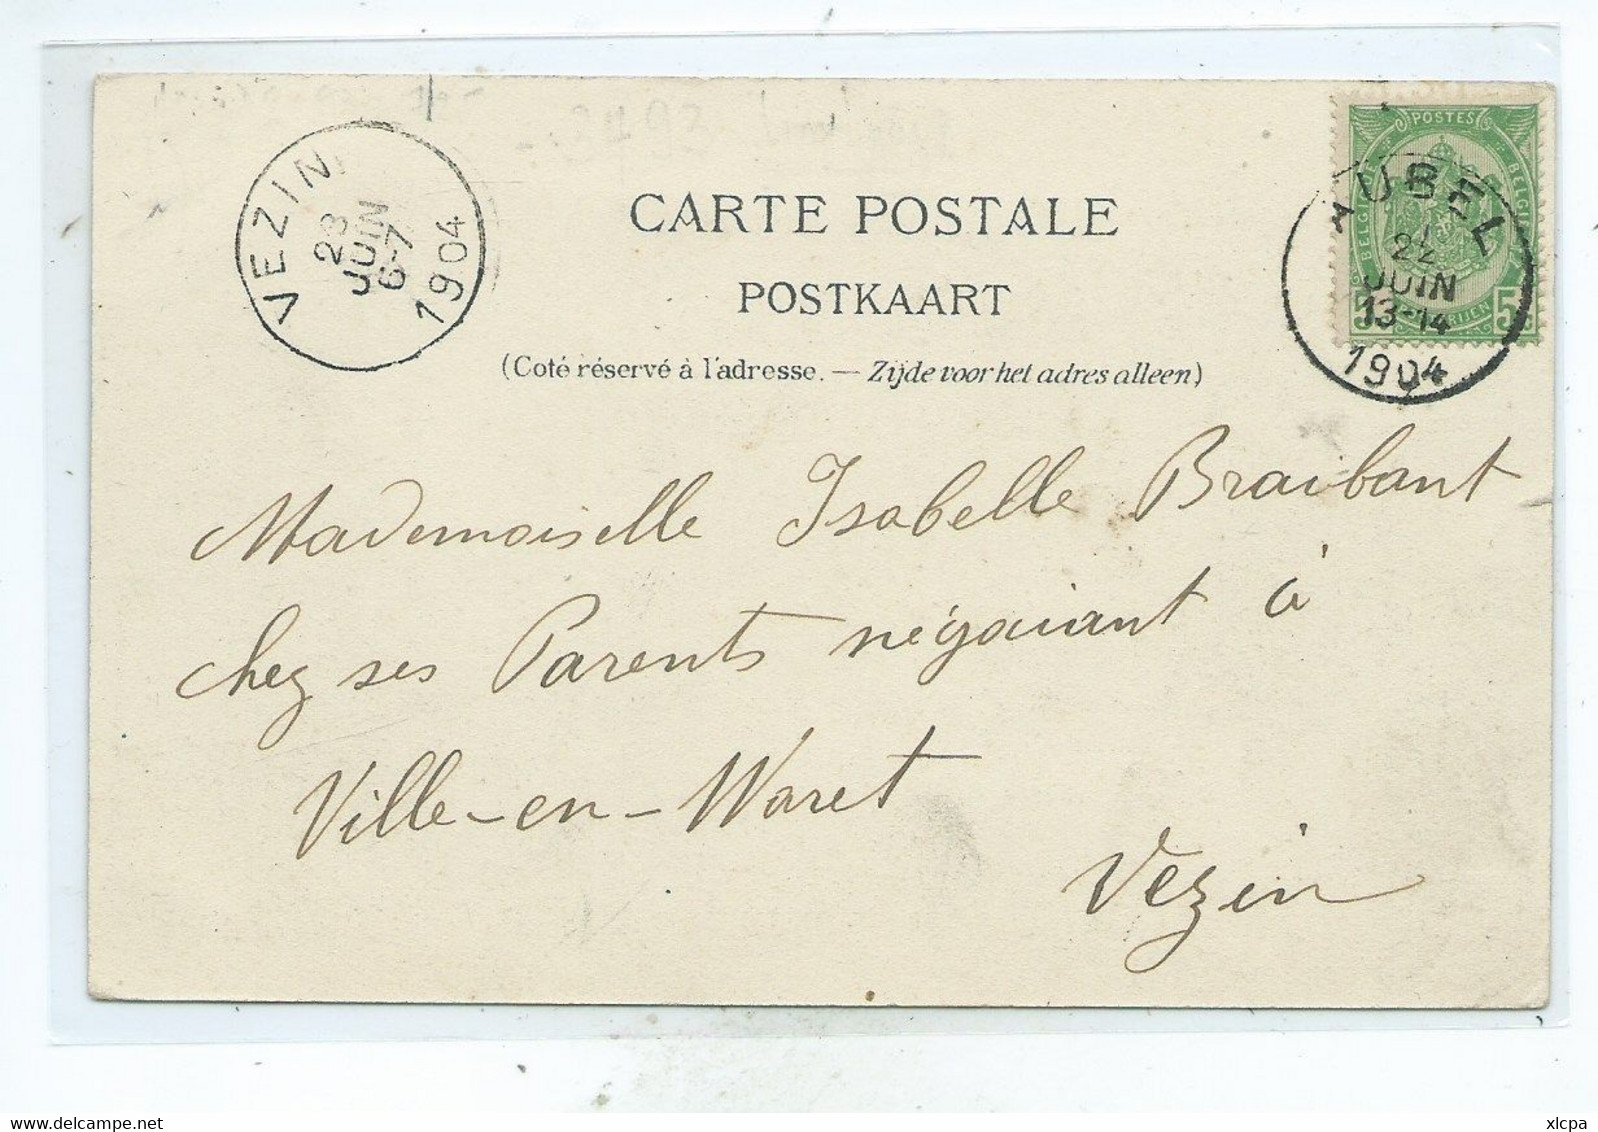 VEZIN
23
JUIN
6-7
1904
POSTES
BELGIQUE
BELGIE
5
5
AUBEL
22
JUIN
13-14
1904
CARTE POSTALE
POSTKAART
(Coté réservé à l'adresse. — Zijde voor het adres alleen)
Mademoiselle Isabelle Braibant
chez ses Parents négociant à
Ville-en-Waret
Vezin
xlcpa